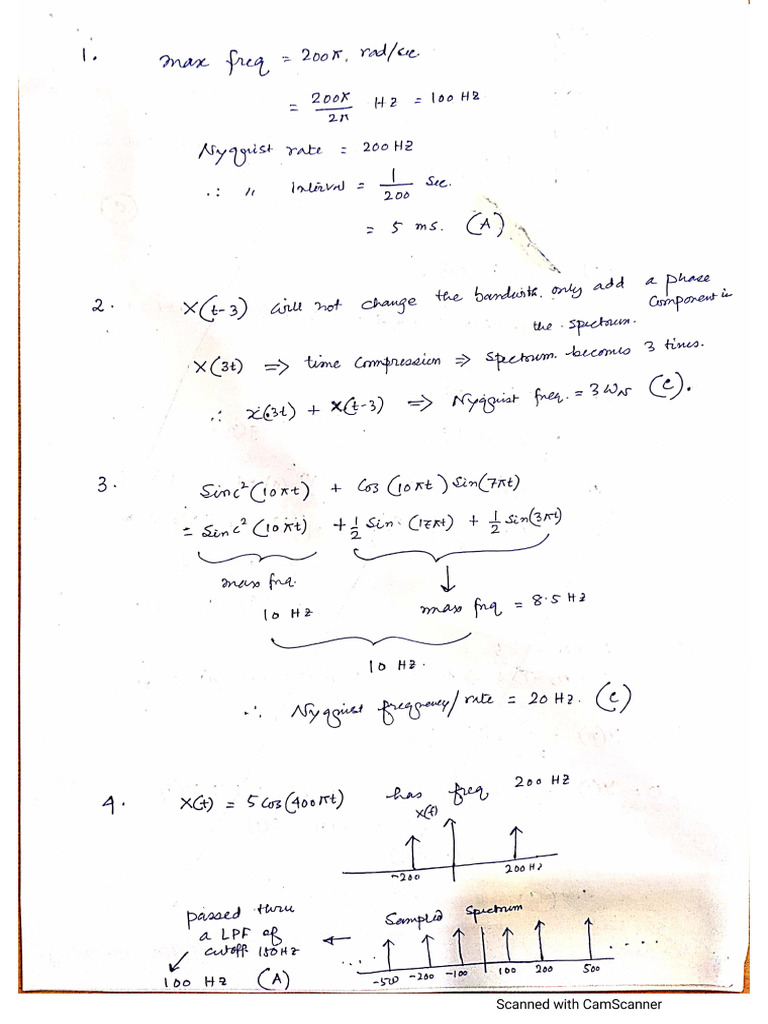 1. max freq = 200π. rad/sec.
= 200π/2π Hz = 100 Hz
Nyquist rate = 200 Hz
∴ " Interval = 1/200 Sec.
= 5 ms. (A)
2. X(t-3) will not change the bandwith. only add a phase
component in
the spectrum.
X(3t) ⇒ time compression ⇒ spectrum becomes 3 times.
∴ x(3t) + x(t-3) ⇒ Nyquist freq. = 3 ωN (C).
3. Sinc²(10πt) + Cos(10πt) Sin(7πt)
= Sinc²(10πt) + 1/2 Sin (17πt) + 1/2 Sin(3πt)
max frq.
10 Hz
max frq = 8.5 Hz
10 Hz.
∴ Nyquist frequency/rate = 20 Hz. (C)
4. X(t) = 5 Cos(400πt) has freq 200 Hz
X(f)
-200 200 Hz
passed thru
a LPF of
cutoff 150Hz
100 Hz (A)
Sampled Spectrum
.... ....
-500 -200 -100 100 200 500
Scanned with CamScanner